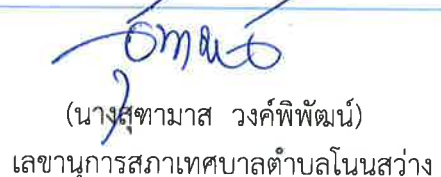 (นางสุฑามาส วงค์พิพัฒน์)
เลขานุการสภาเทศบาลตำบลโนนสว่าง